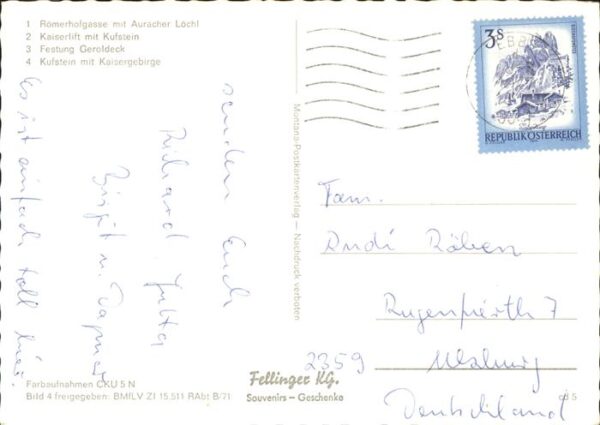 1 Römerhofgasse mit Auracher Löchl
2 Kaiserlift mit Kufstein
3 Festung Geroldeck
4 Kufstein mit Kaisergebirge
3S
REPUBLIK ÖSTERREICH
senden Euch
Richard Jutta
Birgit u.
Es ist einfach toll hier.
Montanc-Postkartenverlag – Nachdruck verboten
Fam.
Rudi Röben
7
2359
Deutschland
Farbaufnahmen CKU 5 N
Bild 4 freigegeben: BMfLV Zl 15.511 RAbt B/71
Fellinger KG.
Souvenirs – Geschenke